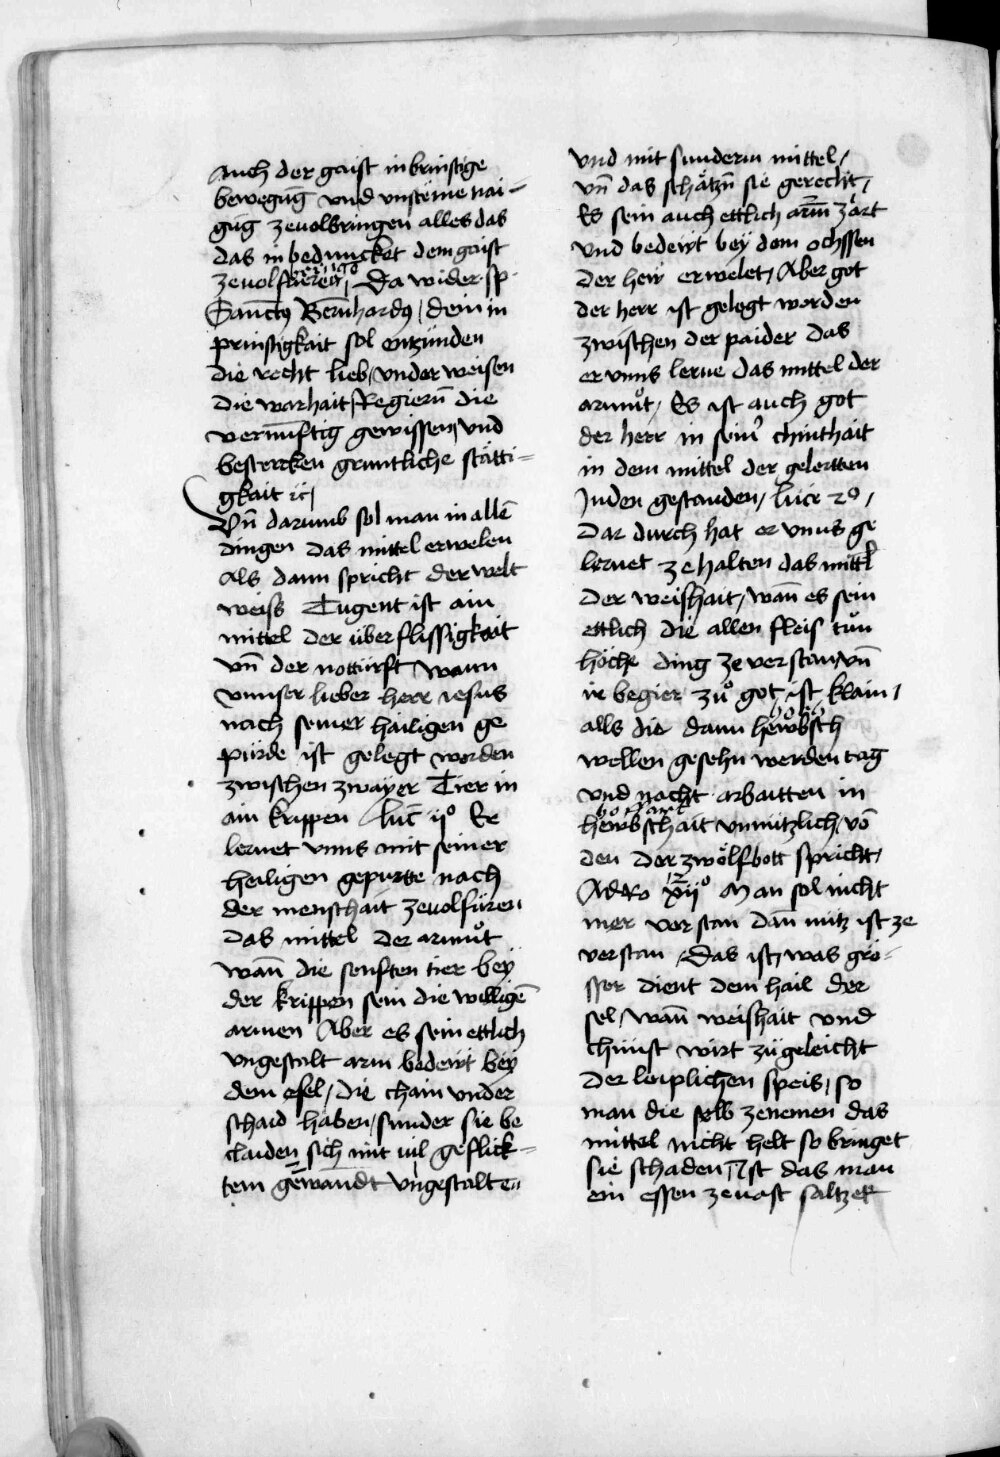 Auch der gaist inbrinstige
bewegūg vnd vnsteme nai-
gūg zeuolbringen alles das
das in beduncket dem gaist
Da wider sp
Sanctus Bernhardus / dein in
prinstigkait sol entzünden
die recht lieb / vnderweisen
die warhait / Regiern̄ die
vernūnftig gewissen / vnd
bestercken gruntliche stätti=
gkait ꝛc /
Vn̄ darumb sol man in allē
dingen das mittel erwelen
Als dann spricht der welt
weiss Tugent ist ain
mittel der überflissigkait
vn̄ der notturft wann
vnnser lieber herr iesus
nach seiner hailigen ge
pürde ist gelegt worden
zwischen zwayer Tier in
ain krippen / luc̄ ijº Er
lernet vnns mit seiner
heiligen gepurtte nach
der menschait zeuolfüren
das mittel der armůt
wan̄ die senften tier beÿ
der krippen sein die willigē
armen Aber es sein ettlich
vngestalt arm bedewt beÿ
dem esel / die chain vnder
schaid haben / sunder sie be
claiden sich mit vil geflick=
tem gewandt vngestalte=
vnd mit sunderm mittel /
vn̄ das schätzn̄ sie gerecht /
Es sein auch ettlich arm zart
vnd bedewt beÿ dem ochssen
der hew erwelet / Aber got
der herr ist gelegt worden
zwischen der paider das
er vnns lerne das mittel der
armůt / Es ist auch got
der herr in seinʼ chinthait
in dem mittel der gelertten
Juden gestanden / luce 2º /
Dar durch hat er vnns ge
lernet ze halten das mittl
der weishait / wan̄ es sein
ettlich die allen fleis tůn
höche ding ze verstan / vn̄
ir begier zů got ist klain /
alls die dann hewbsch
wellen gesehn werden tag
vnd nacht arbaitten in
hewbschait vnnützlich / võ
den der zwölfbott spricht /
Ad Ro xijº Man sol nicht
mer verstan dan̄ nütz ist ze
verstan / Das ist / was grö=
sser dient dem hail der
sel / wan̄ weishait vnd
chunst wirt zůgeleicht
der leiplichen speis / so
man die selb zenemen das
mittel nicht helt so bringet
sie schaden / Ist das man
ein essen zeuast saltzet